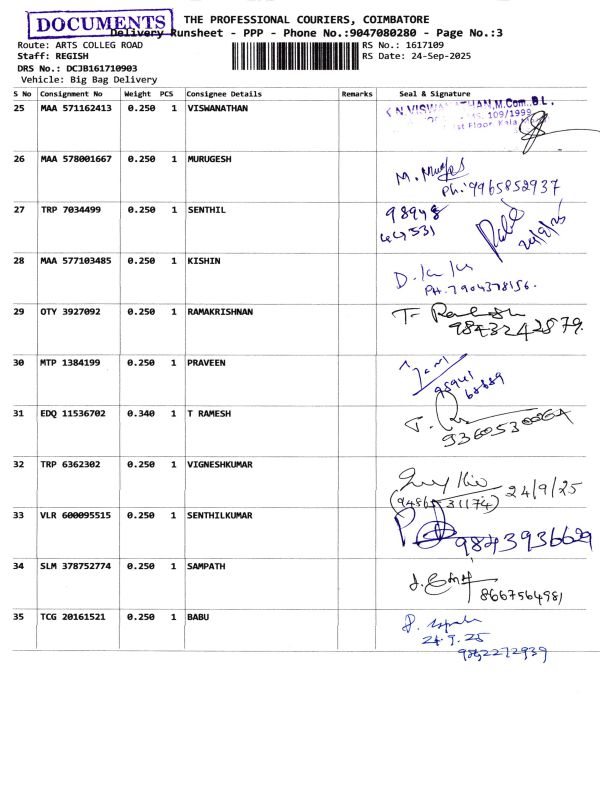 DOCUMENTS
THE PROFESSIONAL COURIERS, COIMBATORE
Delivery Runsheet - PPP - Phone No.:9047080280 - Page No.:3
Route: ARTS COLLEG ROAD
RS No.: 1617109
Staff: REGISH
RS Date: 24-Sep-2025
DRS No.: DCJB161710903
Vehicle: Big Bag Delivery
S No Consignment No Weight PCS Consignee Details Remarks Seal & Signature
25 MAA 571162413 0.250 1 VISWANATHAN
M.Com.,B.L.
109/1999
26 MAA 578001667 0.250 1 MURUGESH
Ph: 9965852937
27 TRP 7034499 0.250 1 SENTHIL
24/9/25
28 MAA 577103485 0.250 1 KISHIN
PH. 7904378156.
29 OTY 3927092 0.250 1 RAMAKRISHNAN
9843242879.
30 MTP 1384199 0.250 1 PRAVEEN
31 EDQ 11536702 0.340 1 T RAMESH
32 TRP 6362302 0.250 1 VIGNESHKUMAR
24/9/25
33 VLR 600095515 0.250 1 SENTHILKUMAR
9843936629
34 SLM 378752774 0.250 1 SAMPATH
8667564981
35 TCG 20161521 0.250 1 BABU
24.9.25